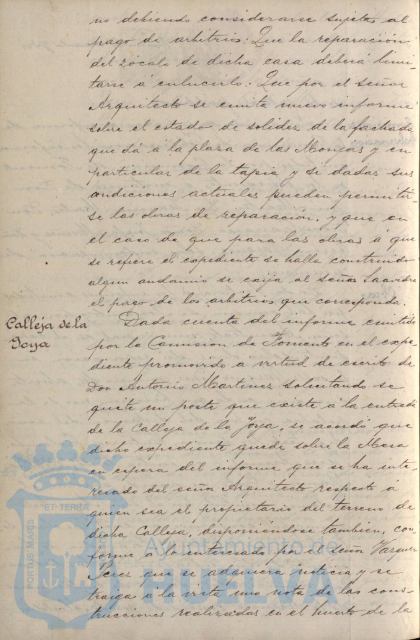 no debiendo considerarse sujetas al
pago de arbitrios. Que la reparación
del zócalo de dicha casa deberá limi
tarse á enlucirlo. Que por el señor
Arquitecto se emita nuevo informe
sobre el estado de solidez de la fachada
que dá á la plaza de las Monjas y en
particular de la tapia y si dadas sus
condiciones actuales pueden permitir
se las obras de reparación, y que en
el caso de que para las obras á que
se refiere el expediente se halle construido
algun andamio se exija al señor
el pago de los arbitrios que corresponda.
Calleja de la
Joya
Dada cuenta del informe emitido
por la Comision de Fomento en el expe
diente promovido á virtud de escrito de
Don Antonio Martinez solicitando se
quite un poste que existe á la entrada
de la Calleja de la Joya, se acordó que
dicho expediente quede sobre la Mesa
en espera del informe que se ha inte
resado del señor Arquitecto respecto á
quien sea el propietario del terreno de
dicha Calleja, disponiéndose tambien, con
forme á lo interesado por el señor Vazquez
Perez que se
traiga á la vista una nota de las cons
trucciones realizadas en el huerto de la
PORTUS MARIS
ET TERRAE
Ayuntamiento de
HUELVA